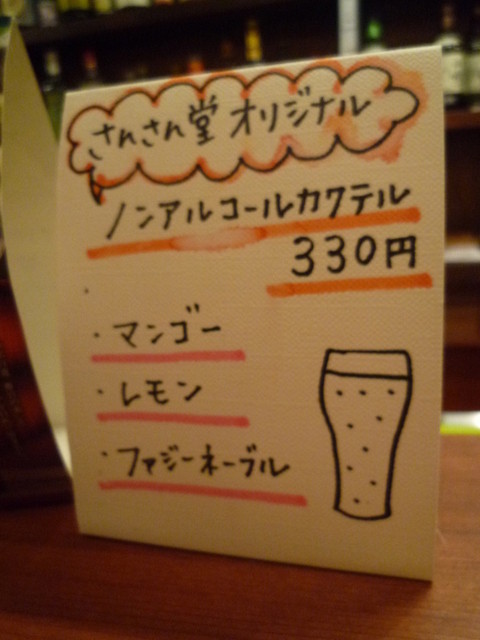 さんさん堂 オリジナル
ノンアルコールカクテル
330円
・マンゴー
・レモン
・ファジーネーブル